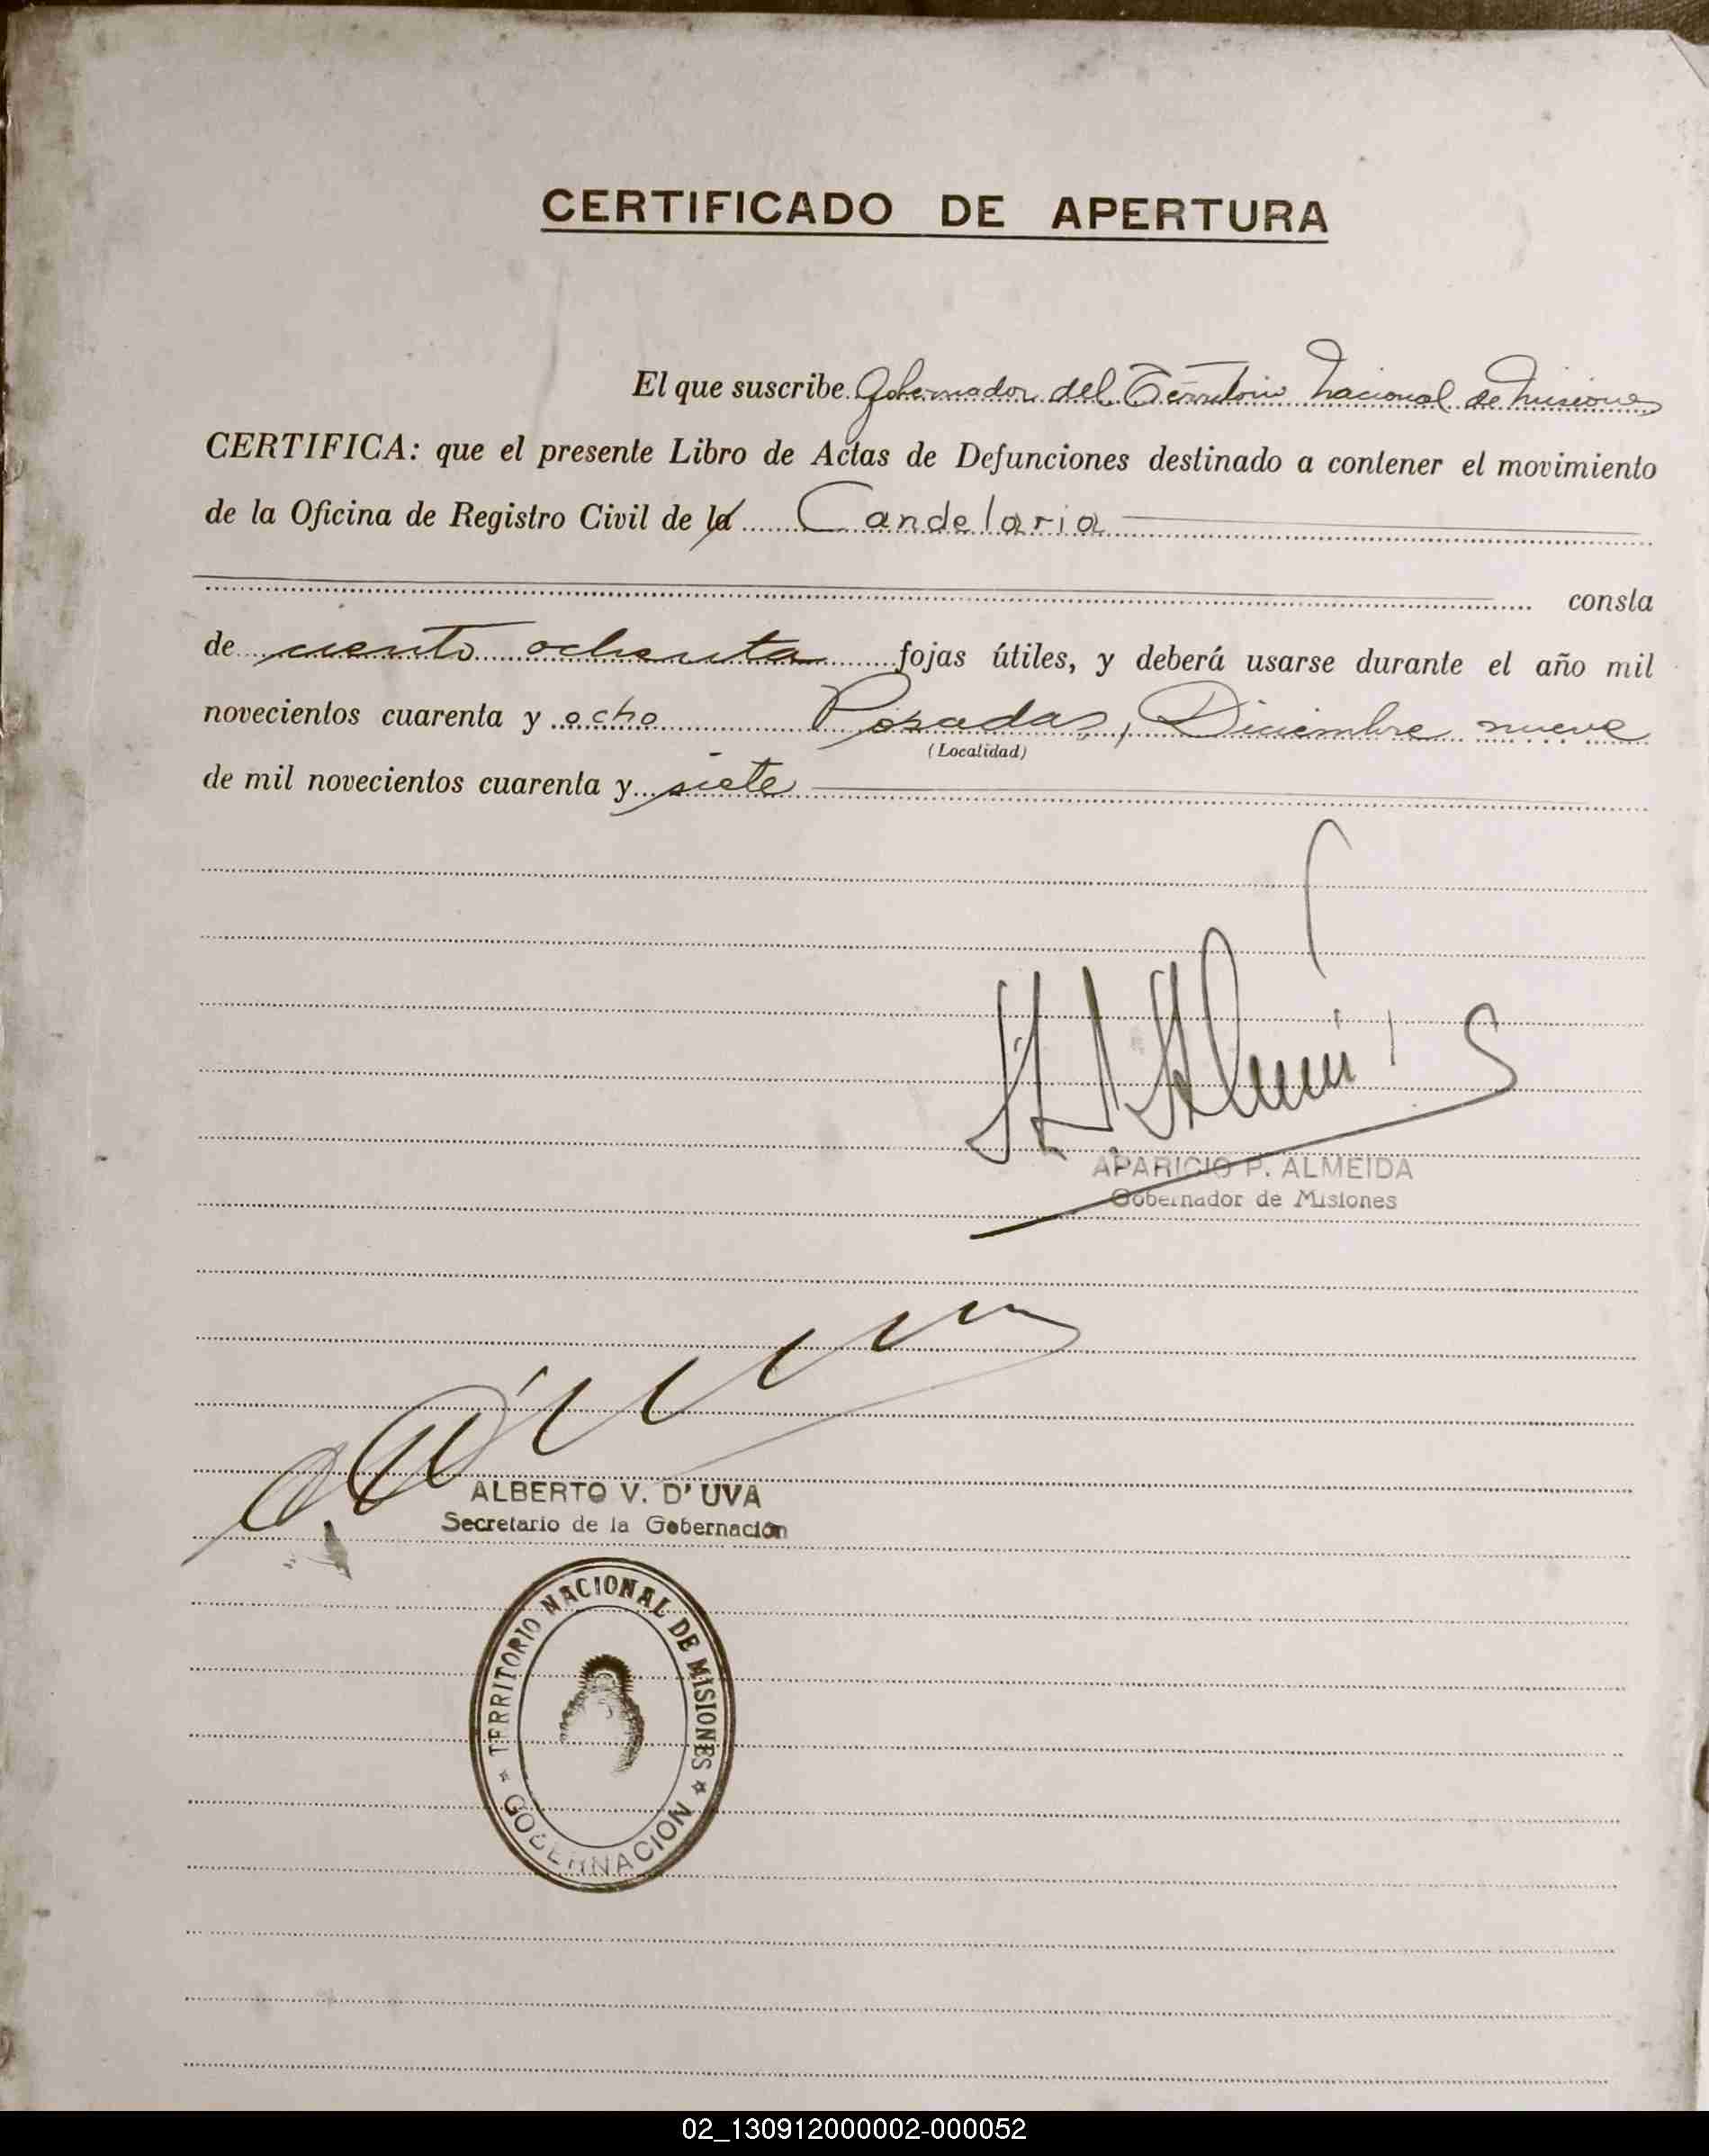 CERTIFICADO DE APERTURA
El que suscribe Gobernador del Territorio Nacional de Misiones
CERTIFICA: que el presente Libro de Actas de Defunciones destinado a contener el movimiento
de la Oficina de Registro Civil de la Candelaria
consta
de ciento ochenta fojas útiles, y deberá usarse durante el año mil
novecientos cuarenta y ocho Posadas, Diciembre nueve
(Localidad)
de mil novecientos cuarenta y siete
APARICIO P. ALMEIDA
Gobernador de Misiones
ALBERTO V. D'UVA
Secretario de la Gobernación
TERRITORIO NACIONAL DE MISIONES
GOBERNACION
02_130912000002-000052